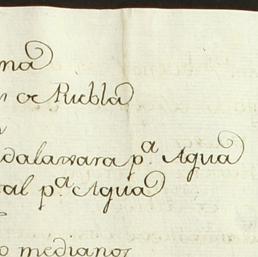 na
n de Puebla
dalaxara p.ª Agua
al p.ª Agua
o medianos